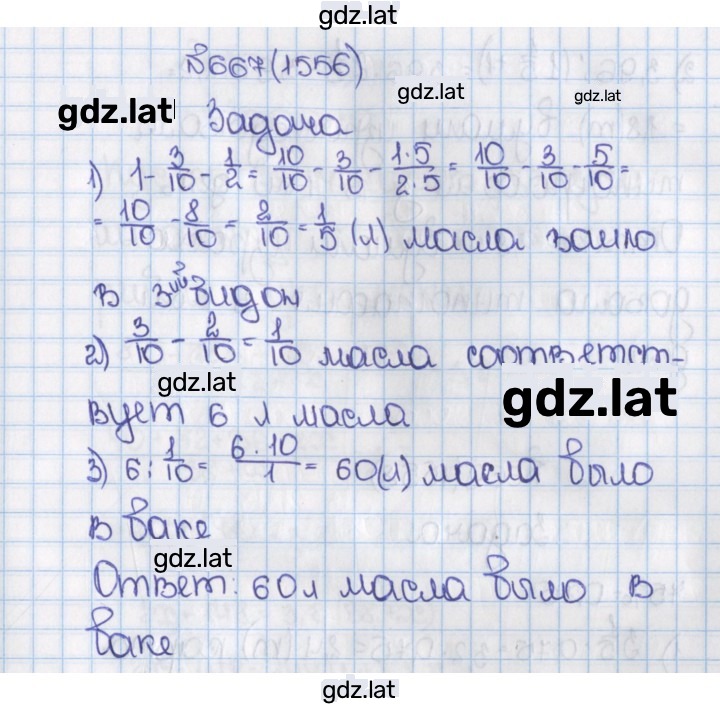 gdz.lat
№667(1556)
gdz.lat gdz.lat gdz.lat
Задача
1) 1 - 3/10 - 1/2 = 10/10 - 3/10 - 1·5/2·5 = 10/10 - 3/10 - 5/10 =
= 10/10 - 8/10 = 2/10 = 1/5 (л) масла зашло
в 3ий бидон
2) 3/10 - 2/10 = 1/10 масла соответст-
gdz.lat gdz.lat
вует 6 л масла
3) 6 : 1/10 = 6·10/1 = 60(л) масла было
в баке
gdz.lat
Ответ: 60 л масла было в
баке
gdz.lat